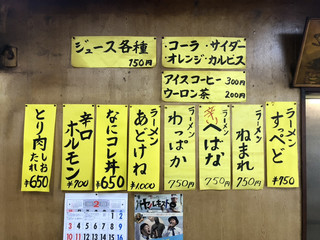 ジュース各種
150円
・コーラ・サイダー
・オレンジ・カルピス
アイスコーヒー 300円
ウーロン茶 200円
ラーメン
すっぺど
¥750
ラーメン
ねまれ
750円
ラーメン
辛へばな
750円
ラーメン
わっぱか
750円
ラーメン
あどけね
¥1,000
なにコレ丼
¥650
辛口
ホルモン
¥700
とり肉しお
たれ
¥650
2